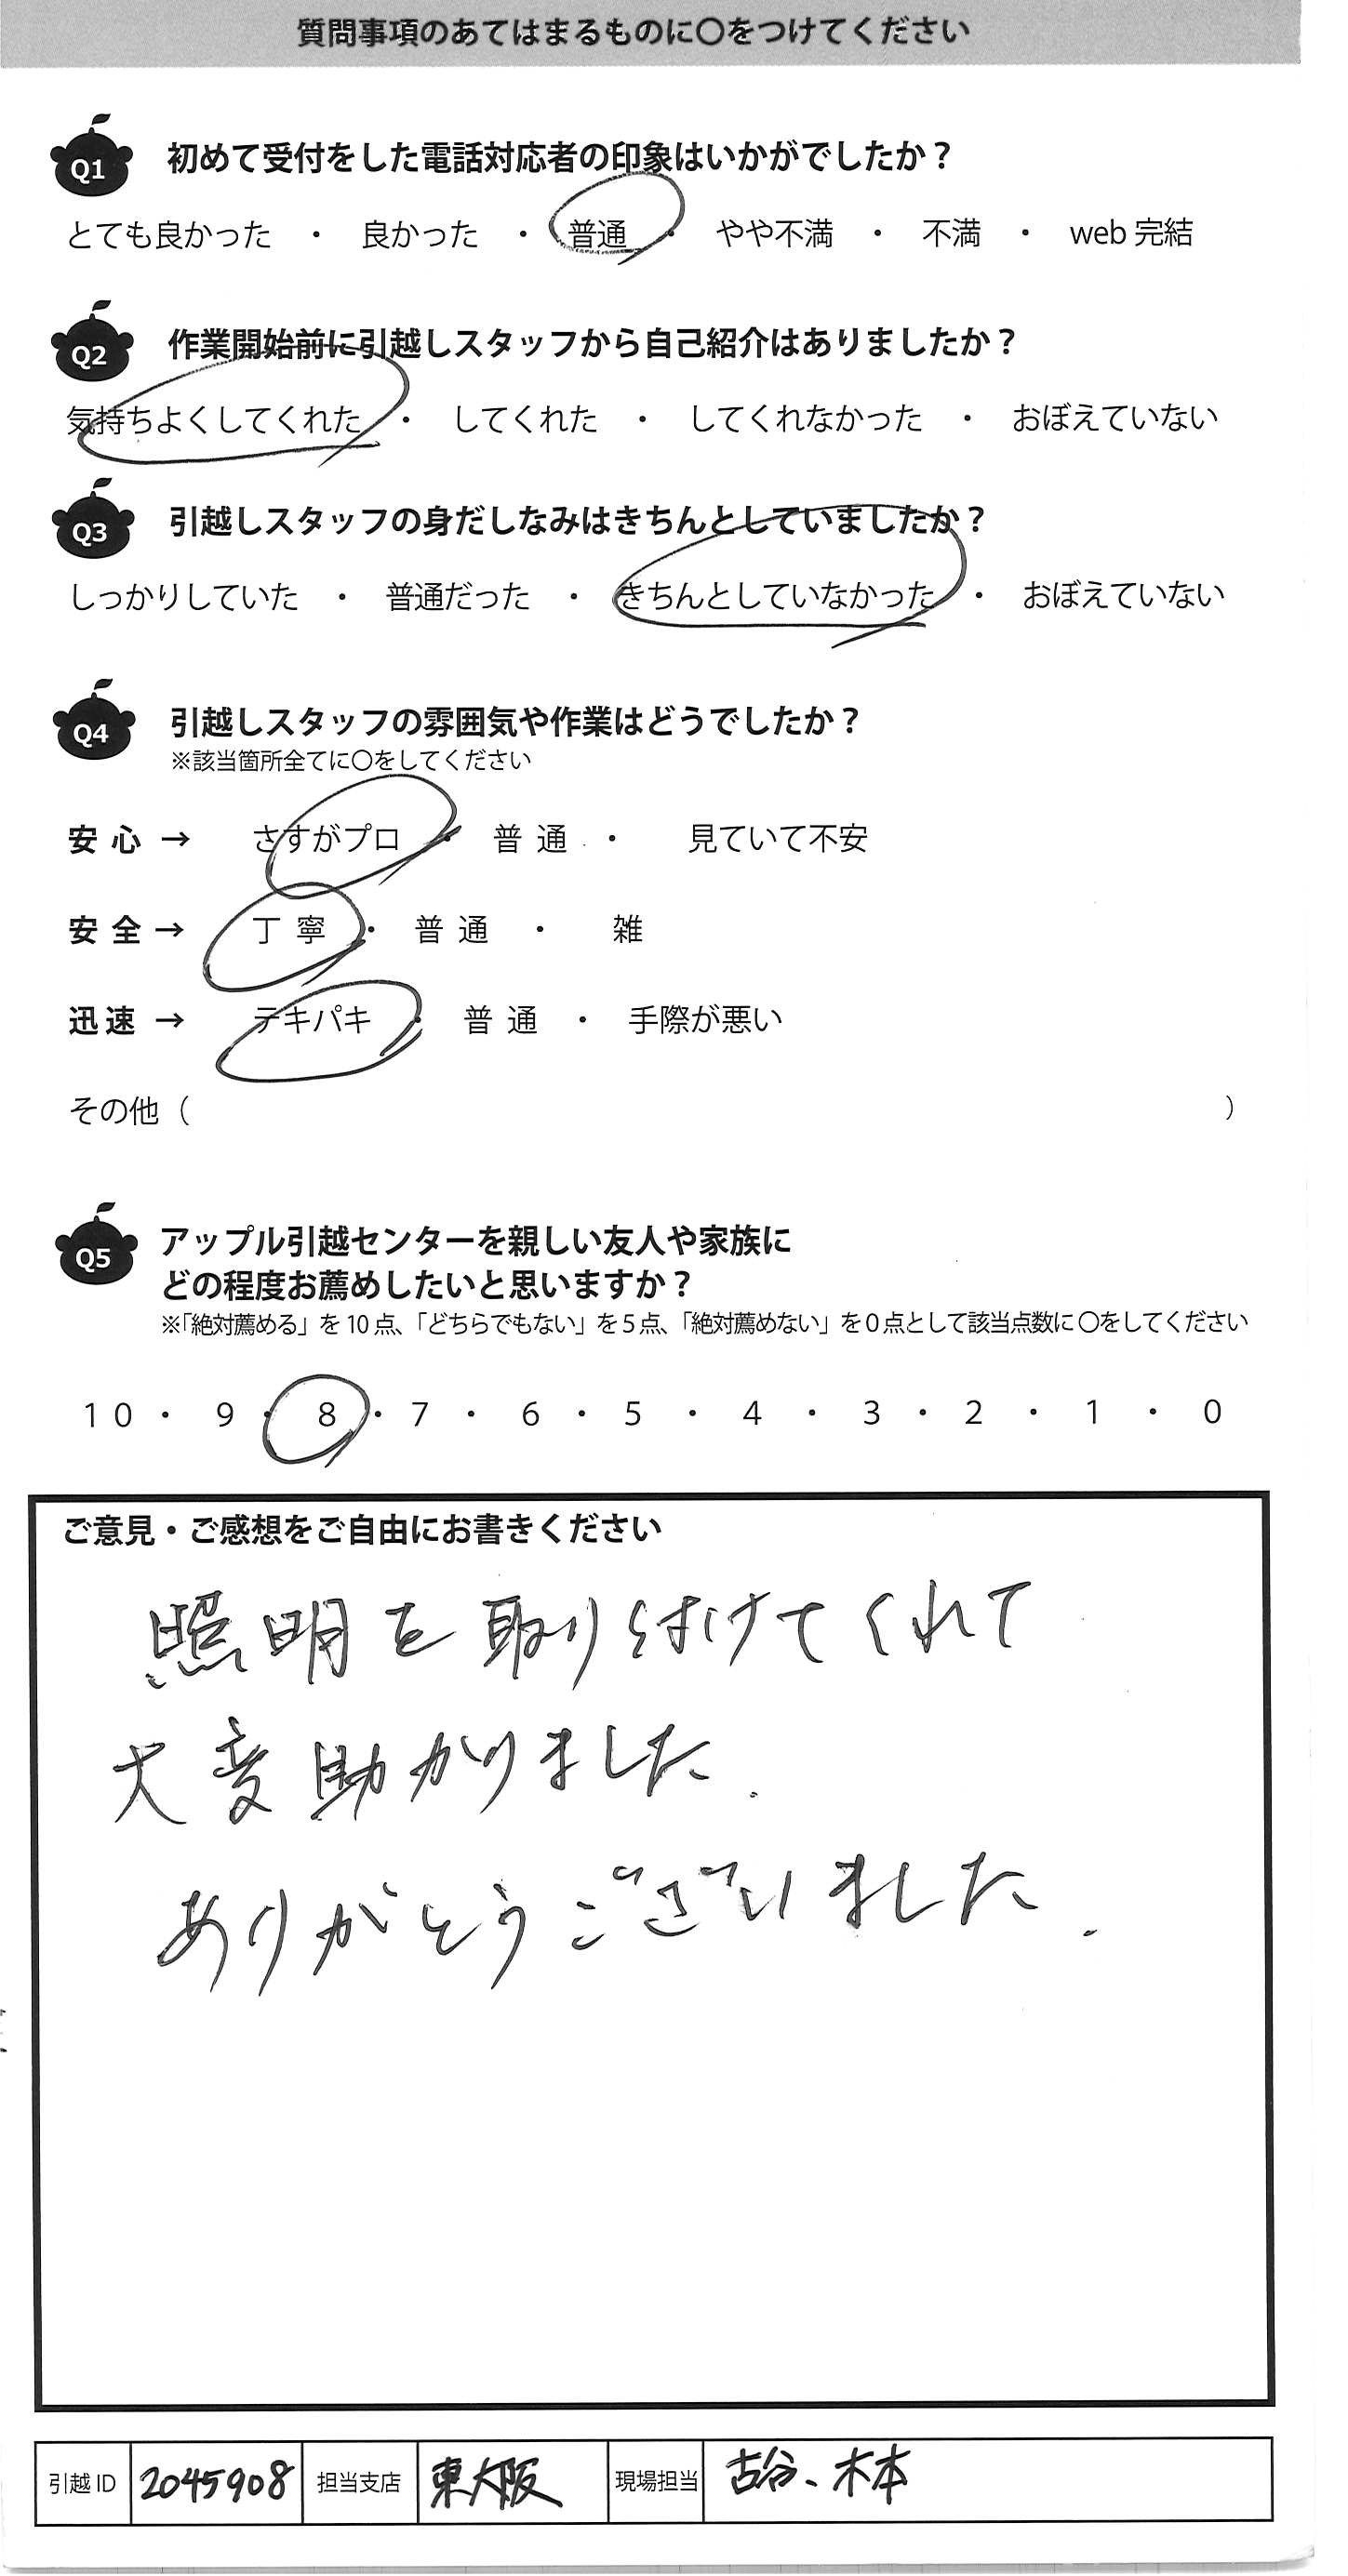 質問事項のあてはまるものに〇をつけてください
Q1 初めて受付をした電話対応者の印象はいかがでしたか？
とても良かった ・ 良かった ・ 普通 ・ やや不満 ・ 不満 ・ web 完結
Q2 作業開始前に引越しスタッフから自己紹介はありましたか？
気持ちよくしてくれた ・ してくれた ・ してくれなかった ・ おぼえていない
Q3 引越しスタッフの身だしなみはきちんとしていましたか？
しっかりしていた ・ 普通だった ・ きちんとしていなかった ・ おぼえていない
Q4 引越しスタッフの雰囲気や作業はどうでしたか？
※該当箇所全てに〇をしてください
安心 → さすがプロ ・ 普通 ・ 見ていて不安
安全 → 丁寧 ・ 普通 ・ 雑
迅速 → テキパキ ・ 普通 ・ 手際が悪い
その他（ ）
Q5 アップル引越センターを親しい友人や家族に
どの程度お薦めしたいと思いますか？
※「絶対薦める」を10点、「どちらでもない」を5点、「絶対薦めない」を0点として該当点数に〇をしてください
10 ・ 9 ・ 8 ・ 7 ・ 6 ・ 5 ・ 4 ・ 3 ・ 2 ・ 1 ・ 0
ご意見・ご感想をご自由にお書きください
照明を取り付けてくれて
大変助かりました.
ありがとうございました.
引越ID 2045908 担当支店 東大阪 現場担当 古谷、木本